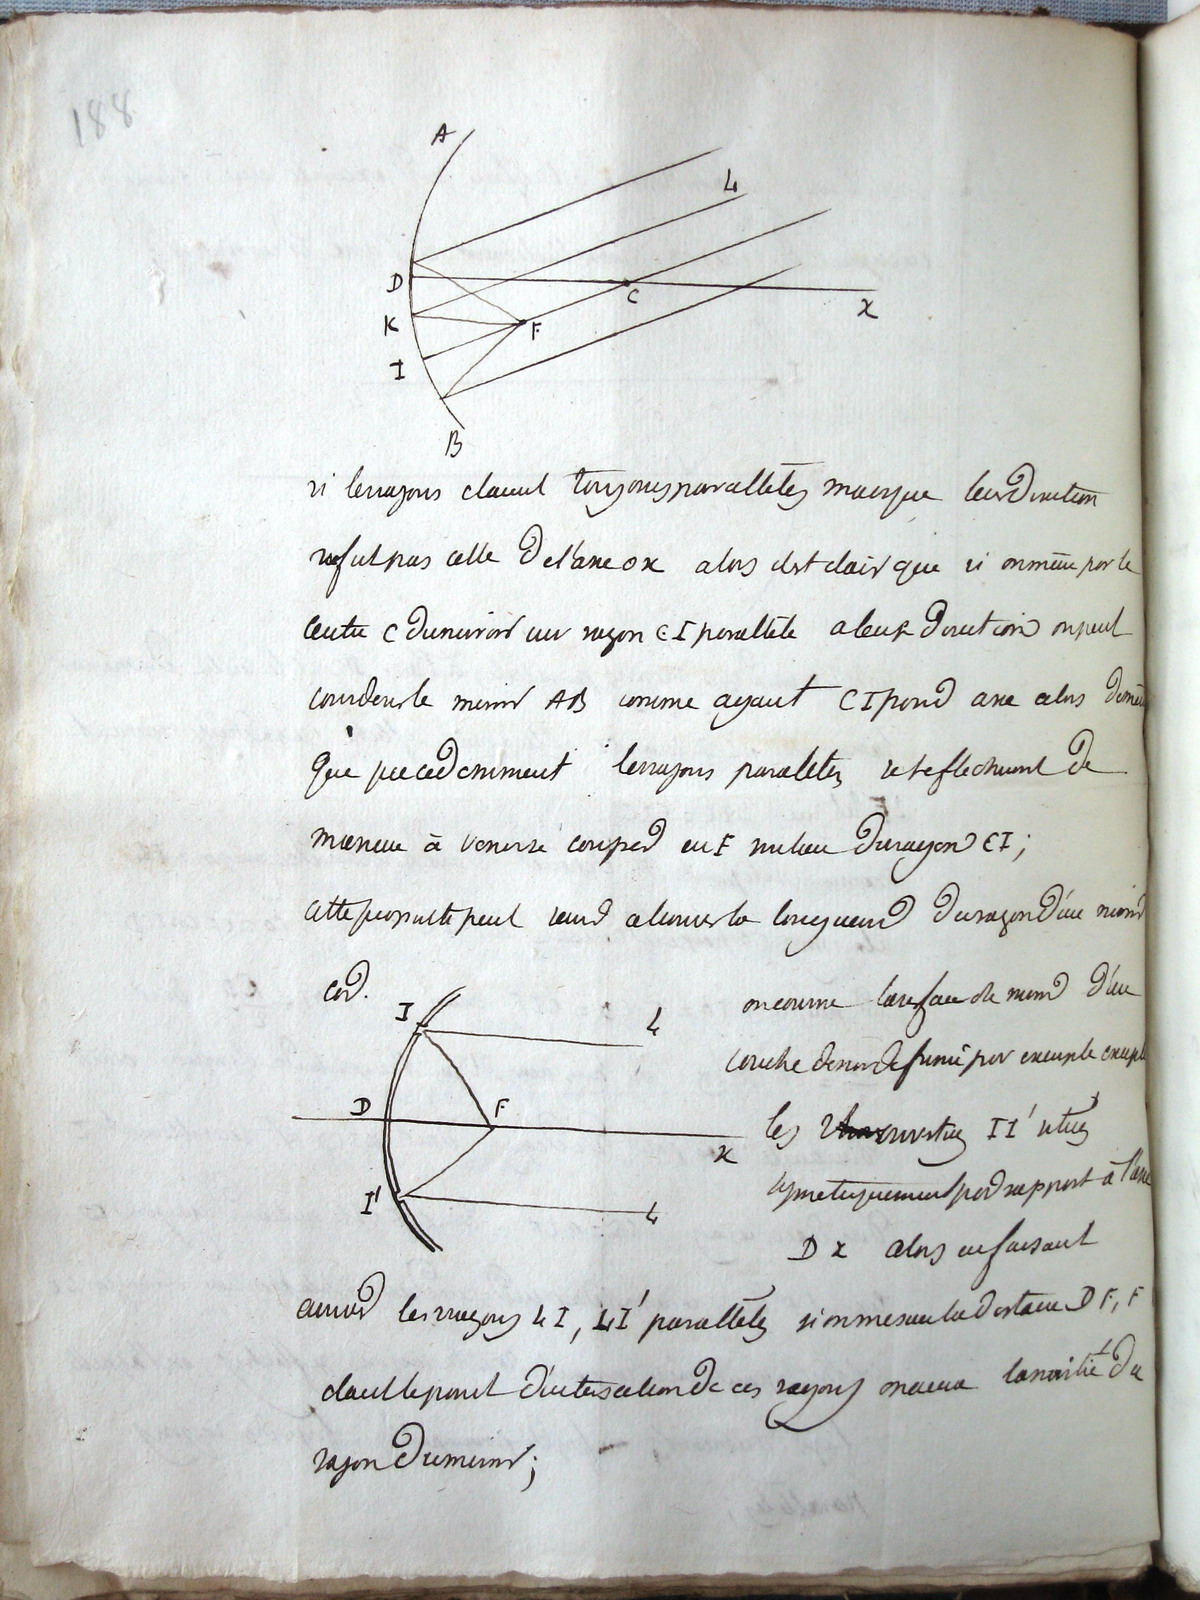 188
A
L
D
C
x
K
F
I
B
si les rayons etaient toujours paralleles mais que leur direction
ne fut pas celle de l'axe ox alors il est clair que si on mene par le
centre C du miroir un rayon CI parallele a leur direction on peut
considerer le miroir AB comme ayant CI pour axe alors de meme
que precedemment les rayons paralleles se reflechiront de
maniere à venir se couper en F milieu du rayon CI;
cette propriete peut servir a trouver la longueur du rayon d'un miroir
car. on couvre la surface de miroir d'une
couche de noir de fumé par exemple excepté
les ouvertures II' situés
symetriquement par rapport à l'axe
Dx alors en faisant
I
L
D
F
x
I'
L
arriver les rayons LI, LI' paralleles si on mesure la distance DF, F
etant le point d'intersection de ces rayons on aura la moitié du
rayon du miroir;